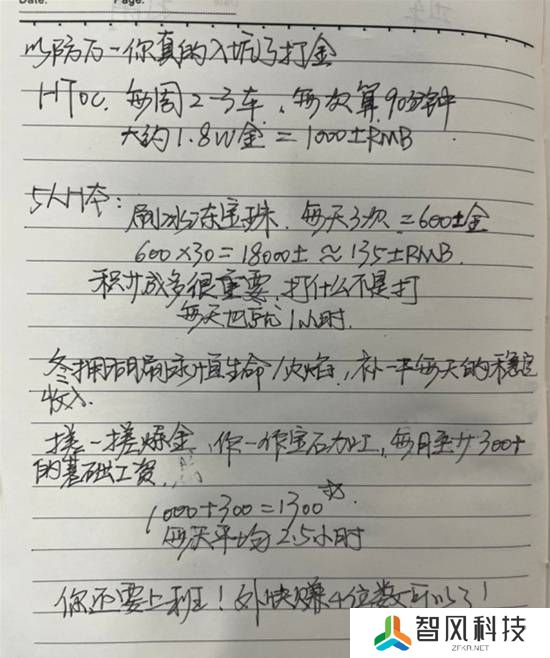 Date:
Page:
以防万一你真的入坑了打金
HTOC.每周2-3车,每次算90分钟
大约1.8W金=1000±RMB
5人H本:
刷冰冻宝珠.每天3次=600±金
600×30=18000±≈135±RMB.
积少成多很重要,打什么不是打
每天也就1小时.
冬拥湖刷永恒生命/火焰,补一半每天的稳定
收入.
搓一搓炼金、你一作宝石加工,每月至少300+
的基础工资,
1000+300=1300
每天平均2.5小时
你还要上班!外快赚4位数可以了!
智风科技
ZFKR.NET